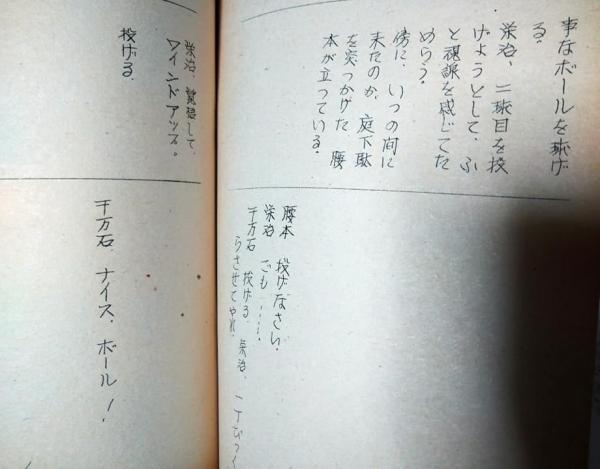 事なボールを投げ
る。
栄治、二球目を投
げようとして、ふ
と視線を感じてた
めらう。
傍に、いつの間に
来たのか、庭下駄
を突っかけた 腰
本が立っている。
腰本 投げなさい。
栄治 でも……。
千万石 投げろ、栄治、一丁びっく
らさせてやれ。
栄治、覚悟して、
ワインドアップ。
投げる。
千万石 ナイス、ボール！